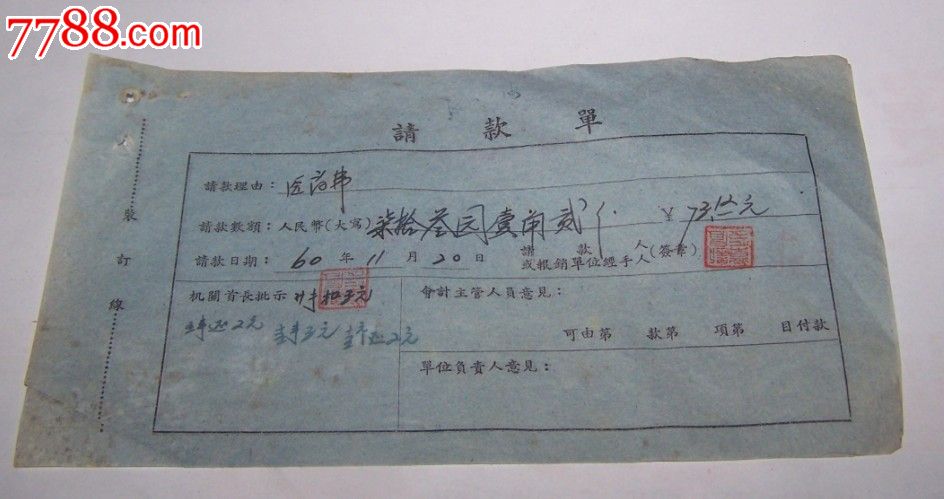 7788.com
請款單
請款理由：医药费
請款數額：人民幣(大寫)柒拾叁元壹角贰分 ￥73.12元
請款日期：60年11月20日 請款人或報銷單位經手人(簽章)
机關首長批示
會計主管人員意見：
可由第 款第 項第 目付款
單位負責人意見：
裝訂線